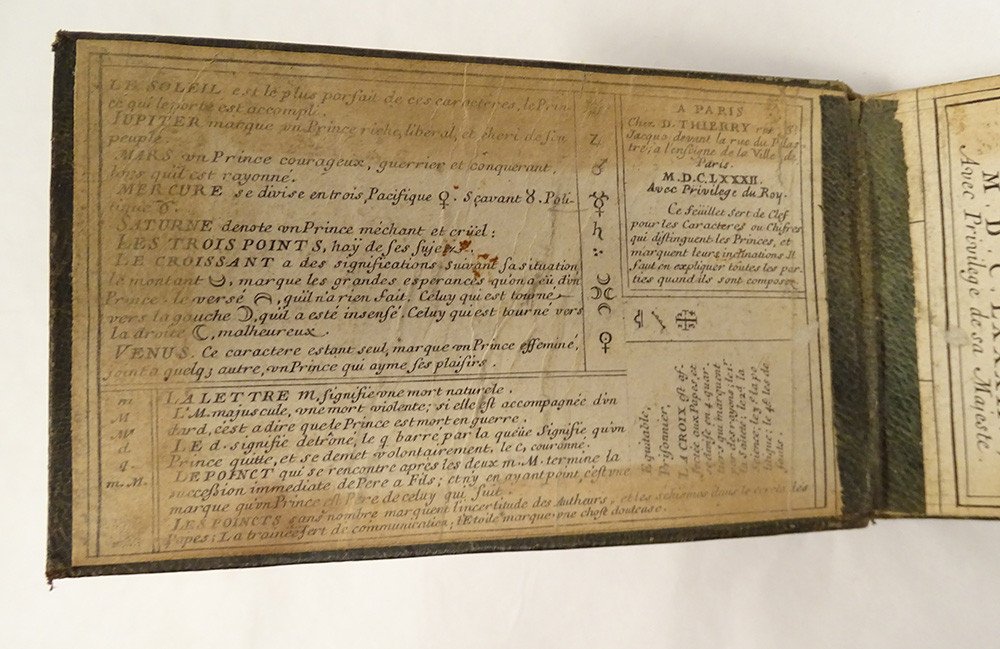 LE SOLEIL est le plus parfait de ces caracteres, le Prin-
ce qui le porte est accompli.
JUPITER marque vn Prince riche, liberal, et cheri de son
peuple.
MARS vn Prince courageux, guerrier et conquerant
lors quil est rayonné.
MERCURE se divise en trois Pacifique ♀. Sçavant ☿. Poli-
tique ♉.
SATURNE denote vn Prince méchant et crüel:
LES TROIS POINTS, haÿ de ses sujets.
LE CROISSANT a des significations suivant sa situation
le montant, marque les grandes esperances qu'on a eü d'vn
Prince. le versé, qu'il n'a rien fait. Celuy qui est tourné
vers la gauche ☽, qu'il a esté insensé. Celuy qui est tourné vers
la droite ☾, malheureux.
VENUS. Ce caractere estant seul, marque vn Prince effeminé,
joint a quelq3 autre, vn Prince qui ayme ses plaisirs.
♃
♂
♄
♀
m
M
d
q
m. M.
LA LETTRE m. signifie vne mort naturele.
L'M. majuscule, vne mort violente; si elle est accompagnée d'vn
dard, c'est a dire que le Prince est mort en guerre.
LE d. signifie detrôné, le q barré par la queüe Signifie qu'vn
Prince quitte, et se demet volontairement, le c, couronné.
LE POINCT qui se rencontre apres les deux m. M. termine la
succession immediate de Pere a Fils; et n'y en ayant point, c'est vne
marque qu'vn Prince est Pere de celuy qui suit.
LES POINCTS sans nombre marquent l'incertitude des Autheurs, et les schismes dans le cercle des
Papes; La trainée sert de communication; l'Etoile marque vne chose douteuse.
A PARIS
Chez D. THIERRY rue St
Jacque devant la rue du Plas-
tre, a l'enseigne de la Ville de
Paris.
M.D.C.LXXXII.
Avec Privilege du Roy.
Ce feüillet sert de Clef
pour les Caracteres ou Chifres
qui distinguent les Princes, et
marquent leurs inclinations Il
faut en expliquer toutes les par-
ties quand ils sont composez
Equitable,
Prisonnier,
LA CROIX est af-
fectée aux Papes, et
se divise en 4 quar-
tiers qui marquent
M. D. C. LXX
Avec Privilege de sa Majesté.